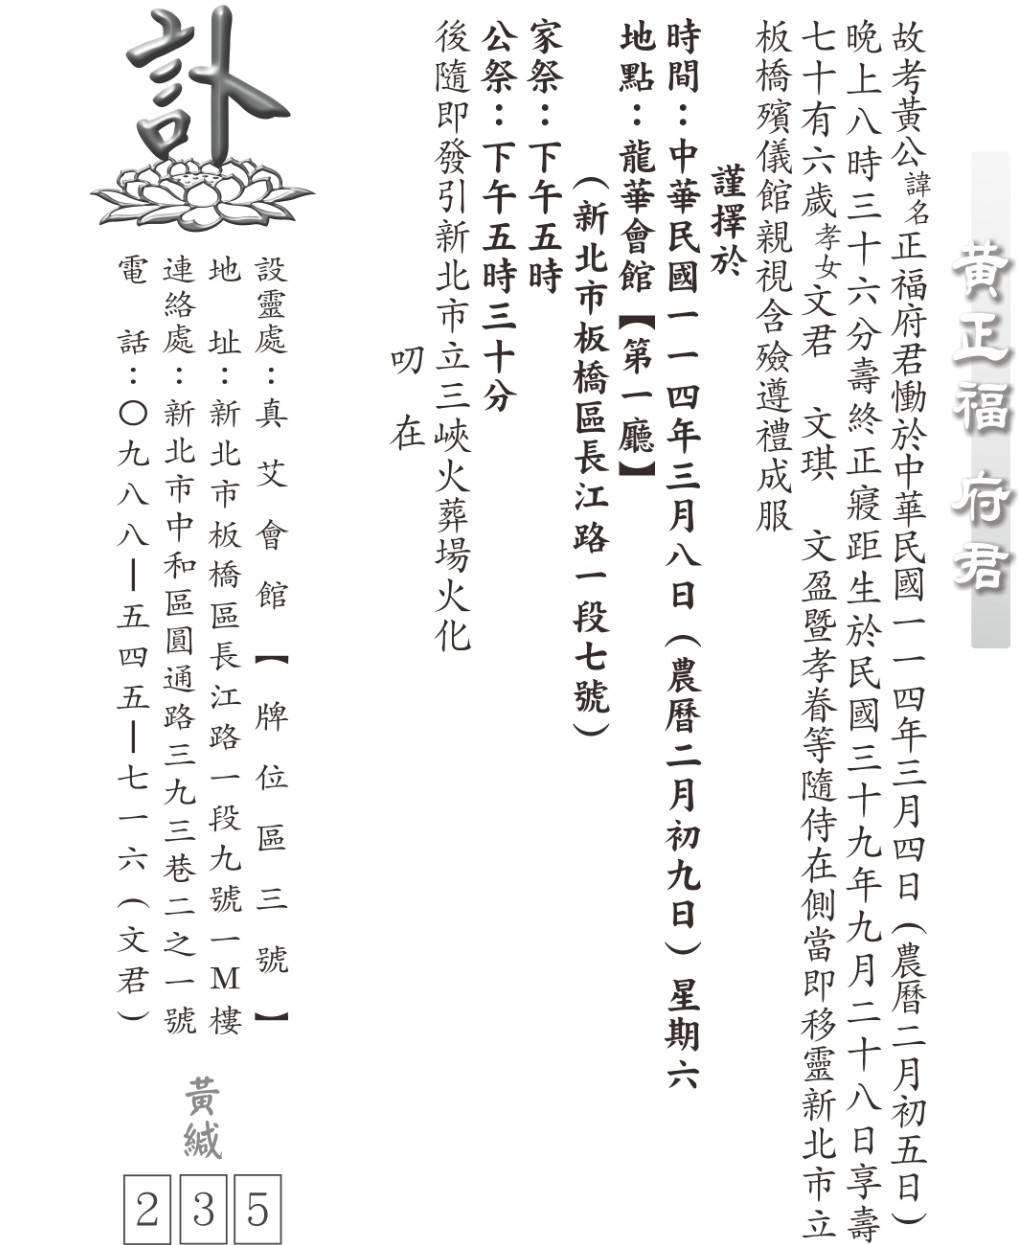 黃正福 府君
故考黃公諱名正福府君慟於中華民國一一四年三月四日（農曆二月初五日）
晚上八時三十六分壽終正寢距生於民國三十九年九月二十八日享壽
七十有六歲孝女文君 文琪 文盈暨孝眷等隨侍在側當即移靈新北市立
板橋殯儀館親視含殮遵禮成服
謹擇於
時間：中華民國一一四年三月八日（農曆二月初九日）星期六
地點：龍華會館【第一廳】
（新北市板橋區長江路一段七號）
家祭：下午五時
公祭：下午五時三十分
後隨即發引新北市立三峽火葬場火化
叨 在
訃
設靈處：真艾會館【牌位區三號】
地 址：新北市板橋區長江路一段九號一M樓
連絡處：新北市中和區圓通路三九三巷二之一號
電 話：〇九八八—五四五—七一六（文君）
黃緘
235